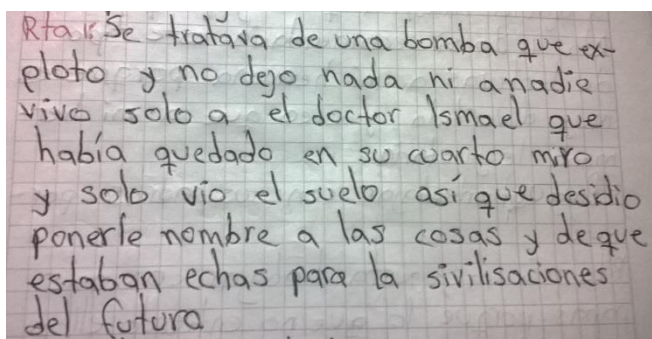 Rta: Se tratava de una bomba que ex-
ploto y no dejo nada ni anadie
vivo solo a el doctor Ismael que
había quedado en su cuarto miro
y solo vio el suelo así que desidio
ponerle nombre a las cosas y deque
estaban echas para la sivilisaciones
del futuro